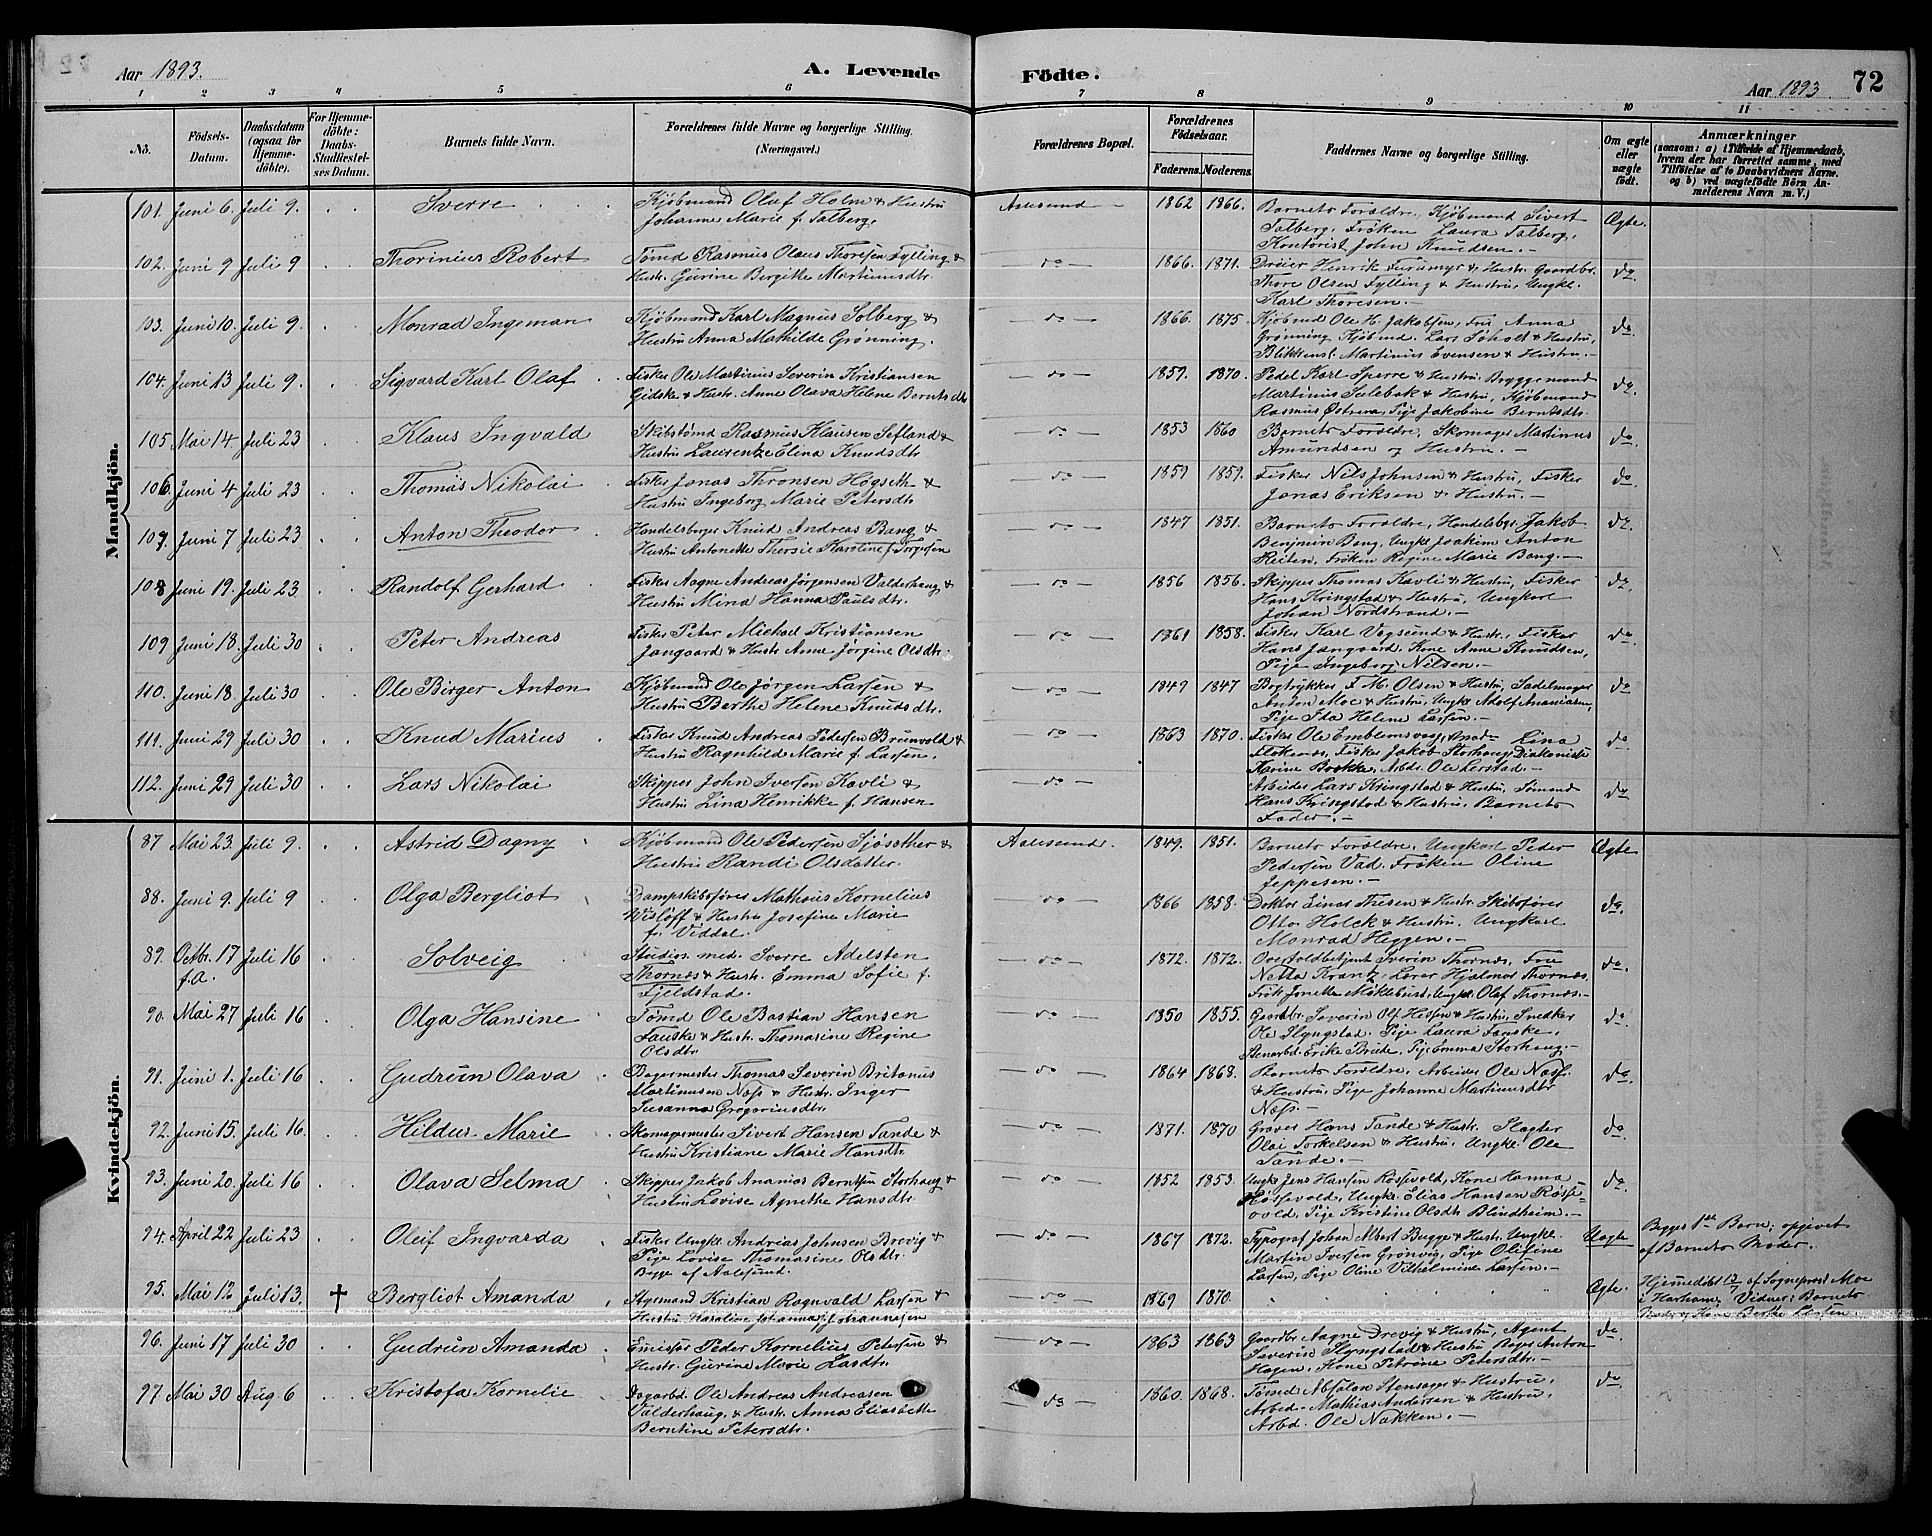 Aar 1893.
A. Levende
Födte.
Aar 1893
72
1 2 3 4 5 6 7 8 9 10 11
No.
Födsels-Datum.
Daabsdatum (ogsaa for Hjemmedöbte).
For Hjemmedöbte: Daabs-Stadfæstelses Datum.
Barnets fulde Navn.
Forældrenes fulde Navne og borgerlige Stilling. (Næringsvei.)
Forældrenes Bopæl.
Forældrenes Födselsaar.
Faderens. Moderens.
Faddernes Navne og borgerlige Stilling.
Om ægte eller uægte födt.
Anmærkninger
(saasom: a) i Tilfælde af Hjemmedaab, hvem der har forrettet samme, med Tilföielse af to Daabsvidners Navne, og b) ved uægtefödte Börn Anmelderens Navn m. V.)
Mandkjön.
101. Juni 6. Juli 9. Sverre Kjöbmand Olaf Holm & Hustru Aalesund 1862 1866. Barnets Forældre, Kjöbmand Sivert Ægte.
Johanne Marie f. Talberg. Talberg, Fröken Laura Talberg,
Kontorist John Knudsen.
102. Juni 9 Juli 9 Thorinius Robert Tømd Rasmus Olaus Thoresen Fylling & do 1866. 1871. Dreier Henrik Furamyr & Hustr. Gaardbr. do
Hustr. Gurine Bergithe Martinusdtr. Thore Olsen Fylling & Hustru, Ungkl.
Karl Thoresen.
103. Juni 10. Juli 9. Monrad Ingeman Kjøbmand Karl Magnus Solberg & do 1866. 1875 Kjöbmd Ole H. Jakobsen, Frk Anna do
Hustru Anna Mathilde Grønning. Grønning, Kjöbmd. Lars Søholt & Hustru,
Blikkensl. Martinus Evensen & Hustru.
104. Juni 13 Juli 9. Sigvard Karl Olaf Fisker Ole Martinus Severin Kristiansen do 1859. 1870. Pedel Karl Sperre & Hustru, Bryggemand do
Gidske & Hustr. Anne Olava Helene Berntsdtr. Martinus Sulebak & Hustru, Kjöbmand
Rasmus Østrem, Pige Jakobine Berntsdtr.
105 Mai 14 Juli 23 Klaus Ingvald Skibstømd Rasmus Klausen Sefland & do 1853 1860 Barnets Forældre, Skomager Martinus do
Hustru Laurentze Elina Knudsdtr. Amundsen og Hustru.
106. Juni 4 Juli 23 Thomas Nikolai Fisker Jonas Thronsen Högseth & do 1859 1859. Fisker Nils Johnsen & Hustru, Fisker do
Hustru Ingeborg Marie Petersdtr Jonas Eriksen & Hustru.
107. Juni 7 Juli 23 Anton Theodor Handelsborger Knud Andreas Bang & do 1847 1851. Barnets Forældre, Handelsbgr. Jakob do
Hustru Antonette Thersie Karoline f. Torgersen Benjamin Bang, Ungkl Joakim Anton
Reiten, Fröken Regine Marie Bang.
108 Juni 19. Juli 23 Randolf Gerhard Fisker Aagne Andreas Jørgensen Valderhaug & do 1856 1856. Skipper Thomas Kavli & Hustru, Fisker do
Hustru Mina Hanna Paulsdtr. Hans Kringstad & Hustru, Ungkarl
Johan Nordstrand.
109 Juni 18. Juli 30 Peter Andreas Fisker Peter Michael Kristiansen do 1861 1858. Fisker Karl Vegsund & Hustr., Fisker do
Jangaard & Hustr. Anne Jørgine Olsdtr. Hans Jangaard, Kone Anne Knudsen,
Pige Ingeborg Nilsen.
110. Juni 18. Juli 30 Ole Birger Anton Kjöbmand Ole Jørgen Larsen & do 1849 1847 Bogtrykker F. M. Olsen & Hustru, Sadelmager do
Hustru Berthe Helene Knudsdtr. Anton Moe & Hustru, Ungkl Adolf Ananiasen,
Pige Ida Helene Larsen.
111. Juni 29 Juli 30 Knud Marius Fisker Knud Andreas Pedersen Brunvold & do 1863 1870. Fisker Ole Emblemsvaag, Lina do
Hustru Ragnhilde Marie f. Larsen. Flokenæs, Fisker Jakob Storhaug, Diakonisse
Karine Bakke, Arbdr. Ole Lerstad.
112. Juni 29 Juli 30 Lars Nikolai Skipper John Iversen Kavli & do Arbeider Lars Kringstad & Hustru, Tømmd do
Hustru Lina Henrikke f. Hansen Hans Kringstad & Hustru, Barnets
Fader.
Kvindekjön.
87 Mai 23. Juli 9. Astrid Dagny Kjöbmand Ole Pedersen Sjösæther & Aalesund. 1849. 1851. Barnets Forældre, Ungkarl Peder Ægte
Hustru Randi Olsdatter. Pedersen Vad, Fröken Oline
Jeppesen.
88. Juni 9. Juli 9 Olga Bergliot Dampskibsfører Matheus Kornelius do 1866 1858. Doktor Einar Thesen & Hustr. Skibsfører do.
Wislöff & Hustru Josefine Marie Otto Holck & Hustru, Ungkarl
f. Viddal. Monrad Heggen.
89. Octbr. 17 f.a. Juli 16 Solveig Studios. med. Sverre Adelsten do 1872. 1872. Overtoldbetjent Severin Thornæs, Fru do.
Thornæs & Hustr. Emma Sofie f. Netta Krantz, Lærer Hjalmar Thornæs,
Fjeldstad. Frök Jonetta Möklebust, Ungkl. Olaf Thornæs.
90. Mai 27 Juli 16 Olga Hansine Tømd Ole Bastian Hansen do 1850 1855. Gaardbr. Severin Olf Hessen & Hustru, Snedker do
Fauske & Hustr. Thomasine Regine Ole Slyngstad, Pige Laura Fauske,
Olsdtr. Stenarbd. Erike Brude, Pige Emma Storhaug.
91. Juni 1. Juli 16 Gudrun Olava Bagermester Thomas Severin Britanus do 1864 1868. Barnets Forældre, Arbeider Ole Næss do.
Martinusen Næss & Hustr. Inger & Hustru, Pige Johanne Martinusdtr
Susanna Gregoriusdtr. Næss.
92. Juni 15. Juli 16. Hildur Marie Skomagermester Sivert Hansen Tande & do 1871. 1870 Graver Hans Tande & Hustr. Slagter do
Hustru Kristiane Marie Hansdtr. Olai Torkelsen & Hustru, Ungkl. Ole
Tande.
93. Juni 20. Juli 16 Olava Selma Skipper Jakob Ananias Berntsen Storhaug & do 1852 1853. Ungkl Jens Hansen Røssevold, Kone Hanna do.
Hustru Lovise Agnethe Hansdtr. Røssevold, Ungkl. Elias Hansen Røssevold, Pige Kristine Olsdtr Blindheim.
94. April 22 Juli 23 Oleif Ingvarda Fisker Ungkl. Andreas Johnsen Brevig & do 1867 1872. Typograf Johan Albert Bugge & Hustr. Ungkl. Uægte Begges 1ste Barn; opgivet
Pige Lovise Thomasine Olsdtr. Martin Iversen Grønvig, Pige Olefine af Barnets Moder.
Begge af Aalesund. Larsen, Pige Oline Vilhelmine Larsen.
95. Mai 12 Juli 13. † Bergliot Amanda Styrmand Kristian Ragnvald Larsen & do 1869 1870. Ægte. Hjemmedöbt 13/7 af Sogneprest Moe
Hustru Karoline Johanna f. Johannesen i Harham; Vidner: Barnets
Fader & Kone Berthe Larsen.
96. Juni 17 Juli 30 Gudrun Amanda Emissær Peder Kornelius Petersen & do 1863 1863 Gaardbr Aagne Drevig & Hustru, Agent do
Hustr. Gurine Marie Lasdtr. Severin Slyngstad & Hustru, Bager Anton
Hagen, Kone Petrine Petersdtr.
97 Mai 30 Aug 6 Kristofa Kornelie Dagarbd. Ole Andreas Andreasen do 1860. 1868. Tømmd Absalon Stensager & Hustru, do
Valderhaug & Hustr. Anna Eliasbeth Arbed. Mathias Andersen & Hustru,
Berntine Petersdtr. Arbd. Ole Nakken.